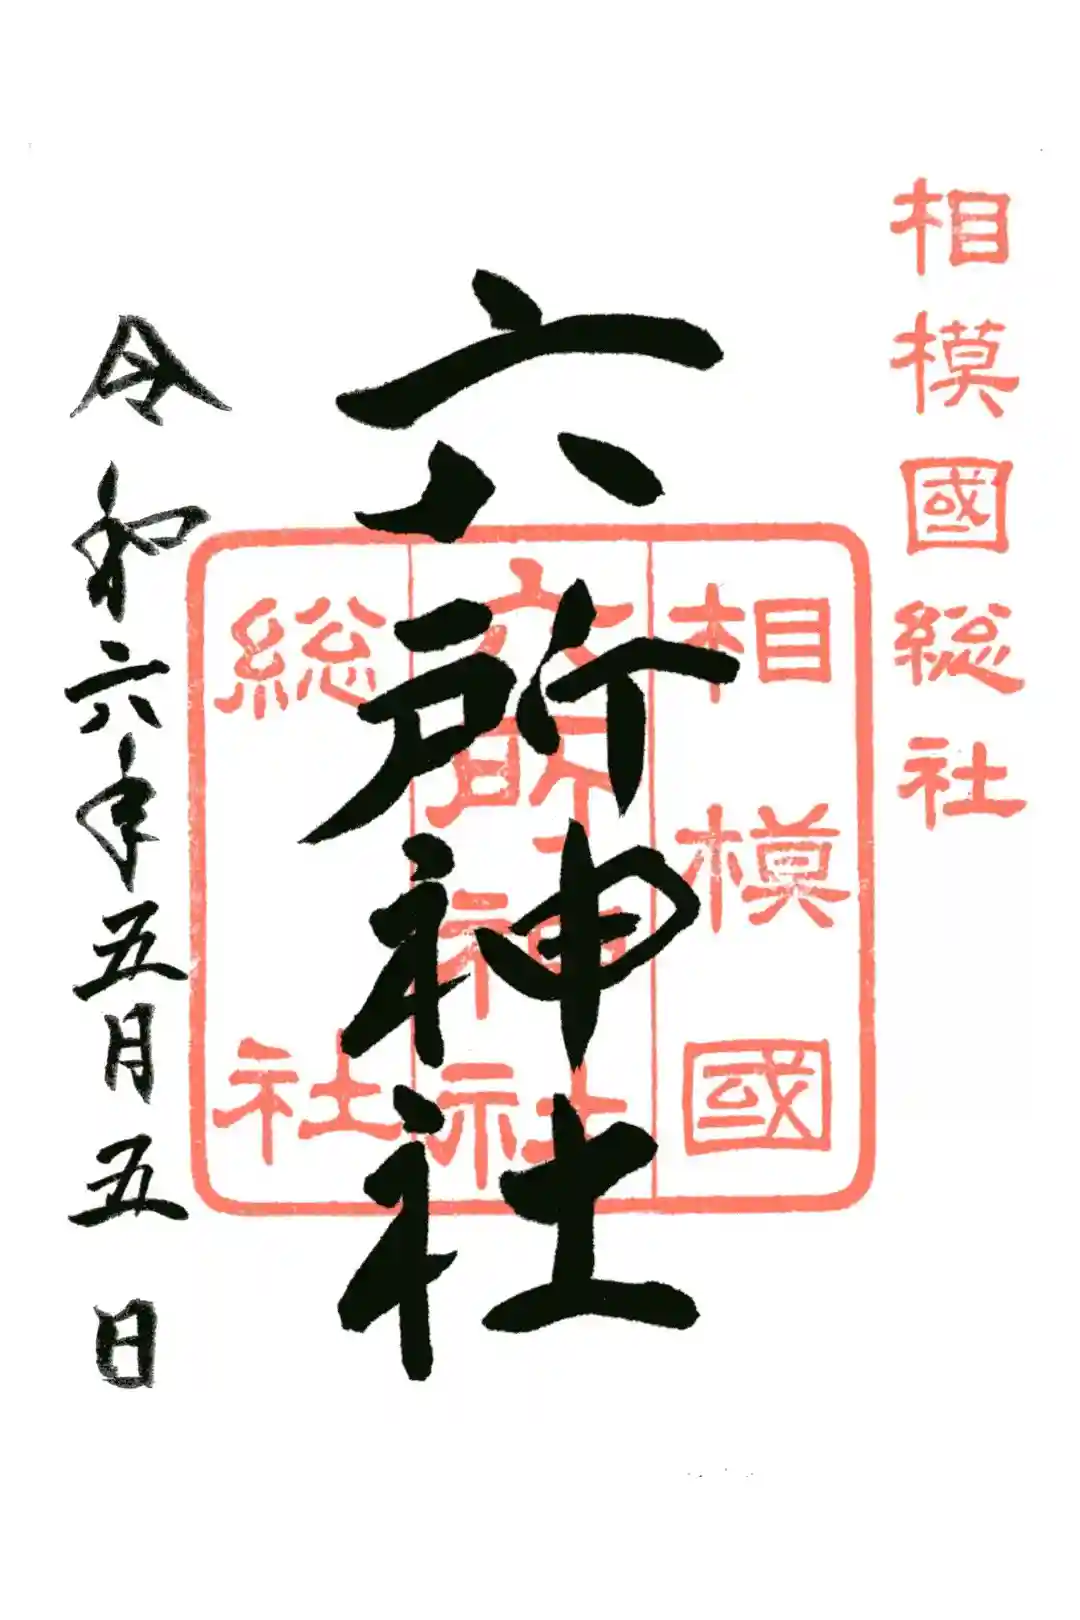 相模國総社
六所神社
相模國
六所神社
総社
令和六年五月五日